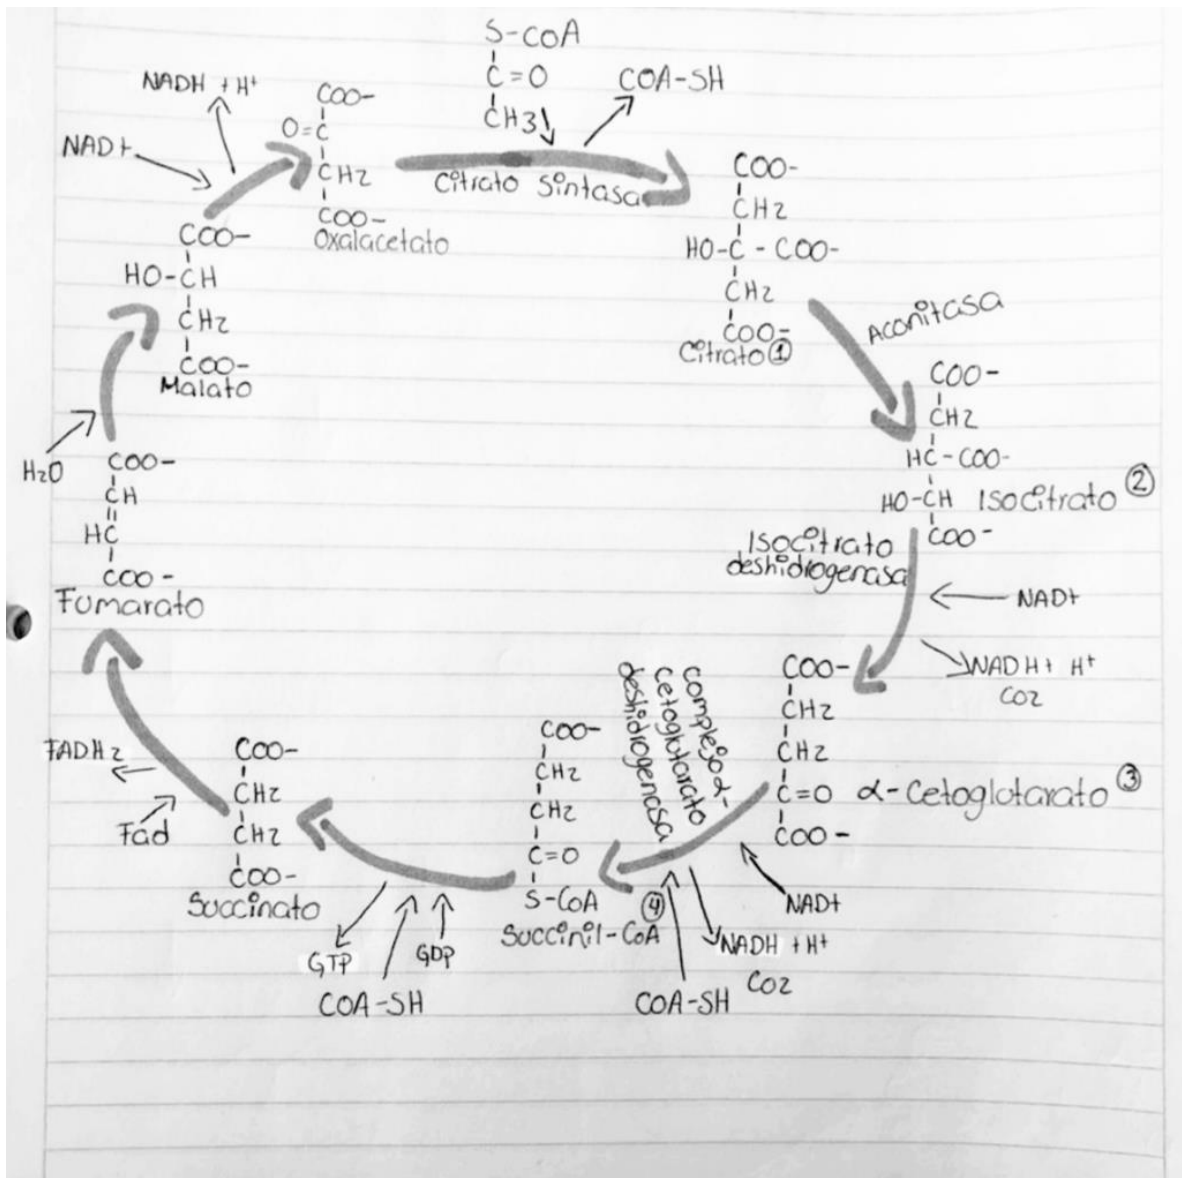 S-COA
C=O
CH3
COA-SH
NADH + H+
NAD+
COO-
O=C
CH2
COO-
Oxalacetato
Citrato Sintasa
COO-
CH2
HO-C-COO-
CH2
COO-
Citrato ①
Aconitasa
COO-
CH2
HC-COO-
HO-CH
COO-
Isocitrato ②
Isocitrato
deshidrogenasa
NAD+
NADH+ H+
CO2
COO-
CH2
CH2
C=O
COO-
α-Cetoglutarato ③
complejo α-
cetoglutarato
deshidrogenasa
NAD+
NADH +H+
CO2
COA-SH
COO-
CH2
CH2
C=O
S-COA
Succinil-CoA ④
GTP
GDP
COA-SH
COO-
CH2
CH2
COO-
Succinato
FADH2
Fad
COO-
CH
HC
COO-
Fumarato
H2O
COO-
HO-CH
CH2
COO-
Malato